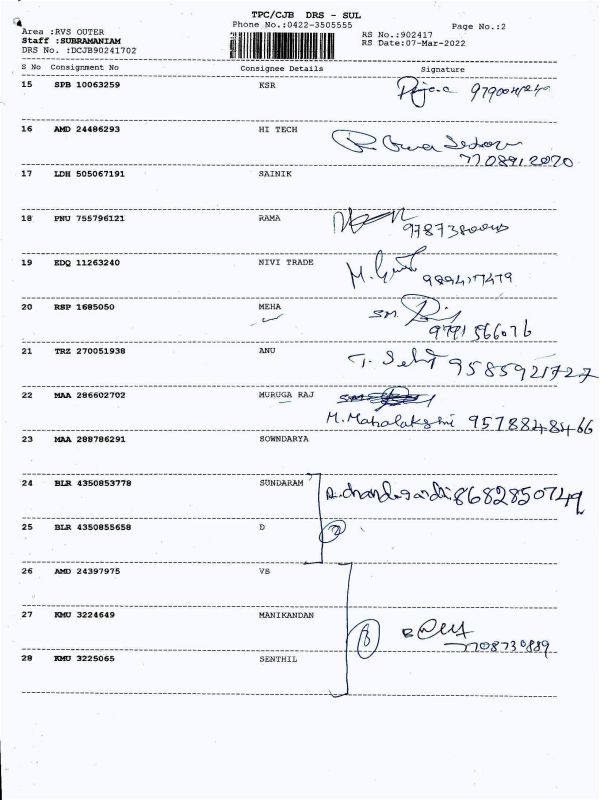 TPC/CJB DRS - SUL
Phone No.:0422-3505555
Page No.:2
Area :RVS OUTER
RS No.:902417
Staff :SUBRAMANIAM
RS Date:07-Mar-2022
DRS No. :DCJB90241702
S No Consignment No Consignee Details Signature
15 SPB 10063259 KSR
16 AMD 24486293 HI TECH
7708912070
17 LDH 505067191 SAINIK
18 PNU 755796121 RAMA
19 EDQ 11263240 NIVI TRADE
20 RSP 1685050 MEHA SM.
9791566076
21 TRZ 270051938 ANU 9585921727
22 MAA 286602702 MURUGA RAJ
M. Mahalakshmi 9578848466
23 MAA 288786291 SOWNDARYA
24 BLR 4350853778 SUNDARAM 8682850749
25 BLR 4350855658 D
26 AMD 24397975 VS
27 KMU 3224649 MANIKANDAN
7708730889
28 KMU 3225065 SENTHIL